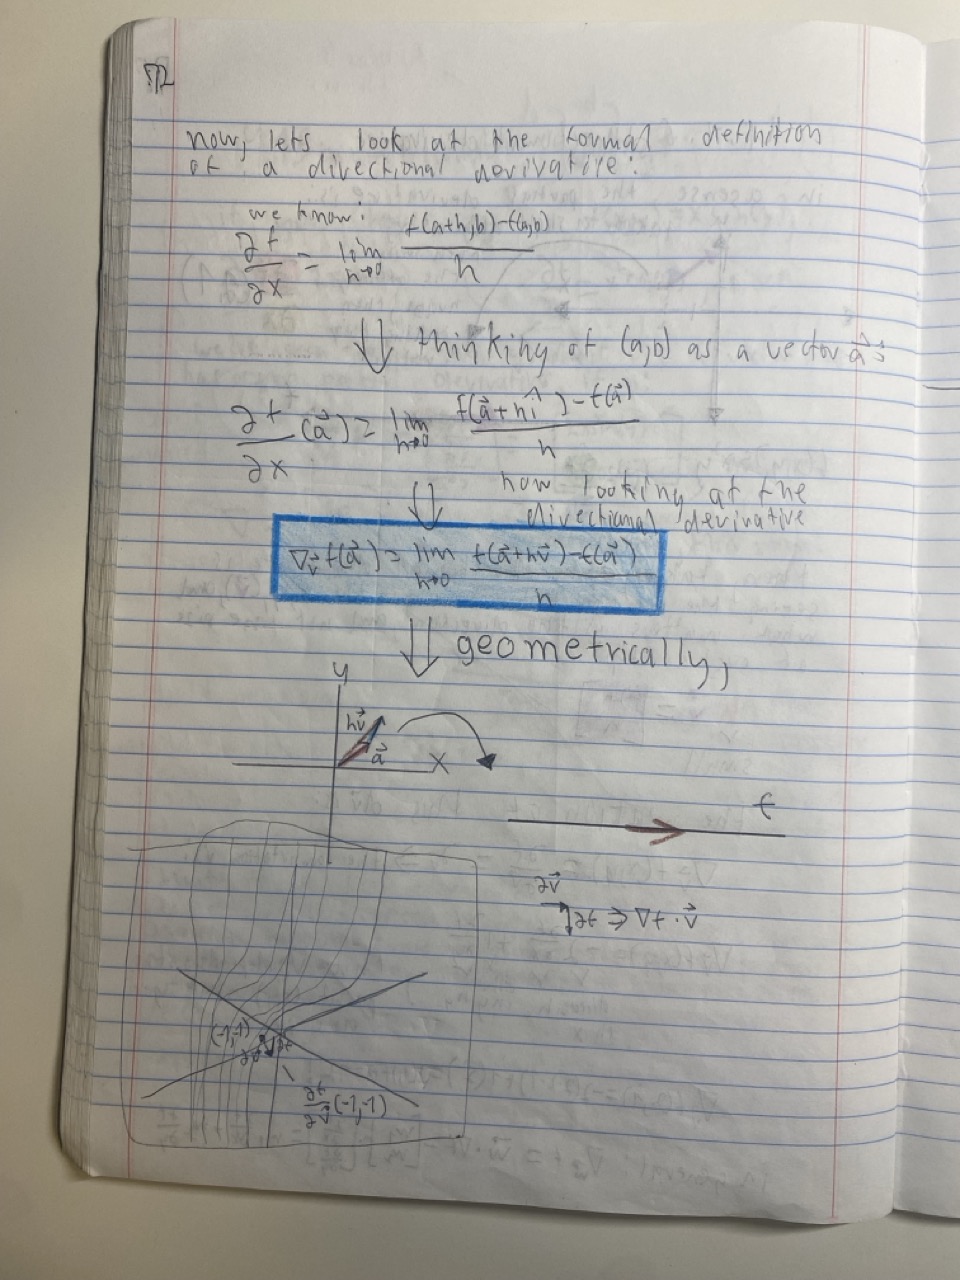 now, lets look at the formal definition
of a directional derivative:
we know:
∂f/∂x = lim h→0 f(a+h,b)-f(a,b)/h
⇓ thinking of (a,b) as a vector a⃗:
∂f/∂x (a⃗) = lim h→0 f(a⃗+hî)-f(a⃗)/h
⇓ now looking at the
directional derivative
∇v⃗ f(a⃗) = lim h→0 f(a⃗+hv⃗)-f(a⃗)/h
⇓ geometrically,
y
hv⃗
a⃗
x
f
∂v⃗
∂f ⇒ ∇f · v⃗
(-1,-1)
∂v⃗ ∂f
∂f/∂v⃗ (-1,-1)